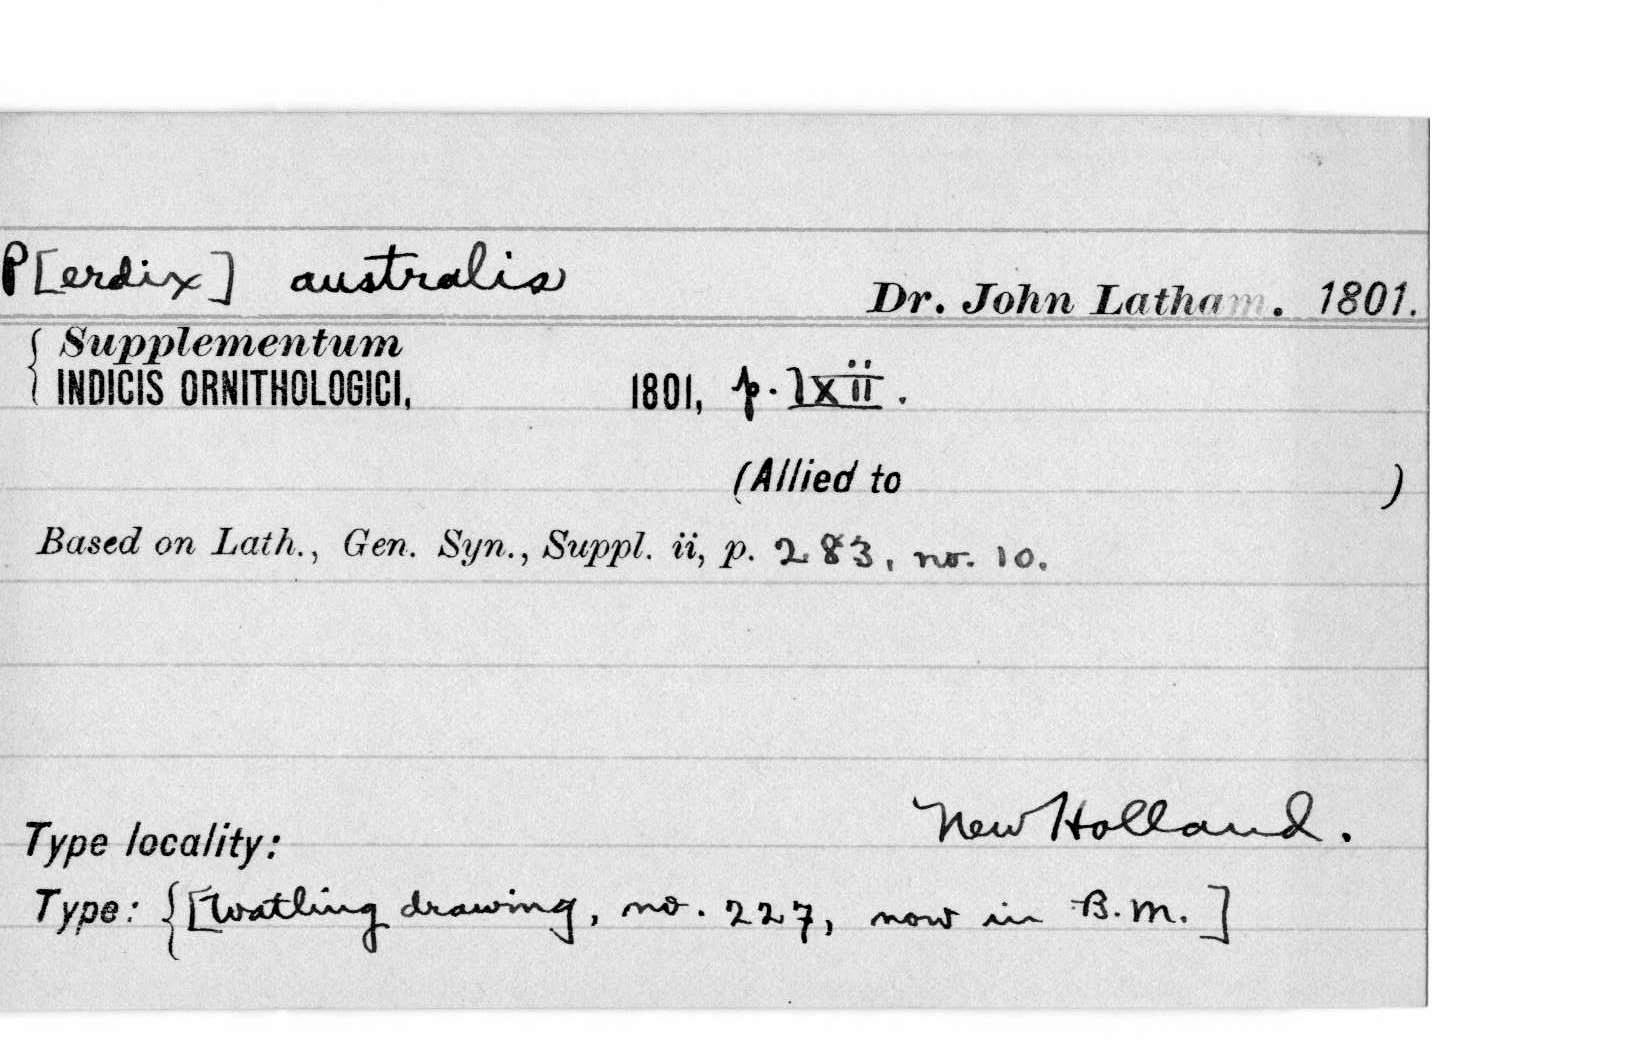 P[erdix] australis
Dr. John Latham. 1801.
Supplementum
INDICIS ORNITHOLOGICI, 1801, p. lxii.
(Allied to )
Based on Lath., Gen. Syn., Suppl. ii, p. 283, no. 10.
New Holland.
Type locality:
Type: {[Watling drawing, no. 227, now in B.M.]